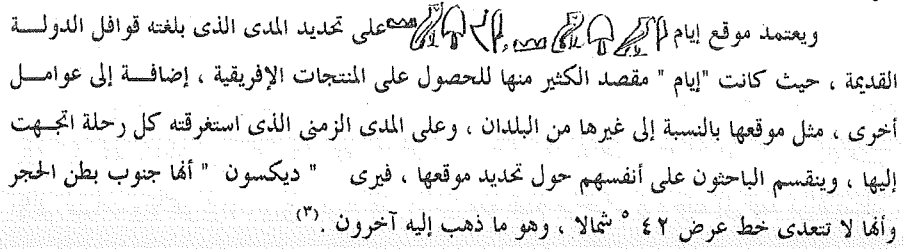 ويعتمد موقع إيام على تحديد المدى الذى بلغته قوافل الدولــة
القديمة ، حيث كانت "إيام " مقصد الكثير منها للحصول على المنتجات الإفريقية ، إضافــة إلى عوامــل
أخرى ، مثل موقعها بالنسبة إلى غيرها من البلدان ، وعلى المدى الزمنى الذى استغرقته كل رحلة اتجــهت
إليها ، وينقسم الباحثون على أنفسهم حول تحديد موقعها ، فيرى " ديكسون " أنها جنوب بطن الحجر
وأنها لا تتعدى خط عرض ٤٢ ° شمالا ، وهو ما ذهب إليه آخرون . (٣)